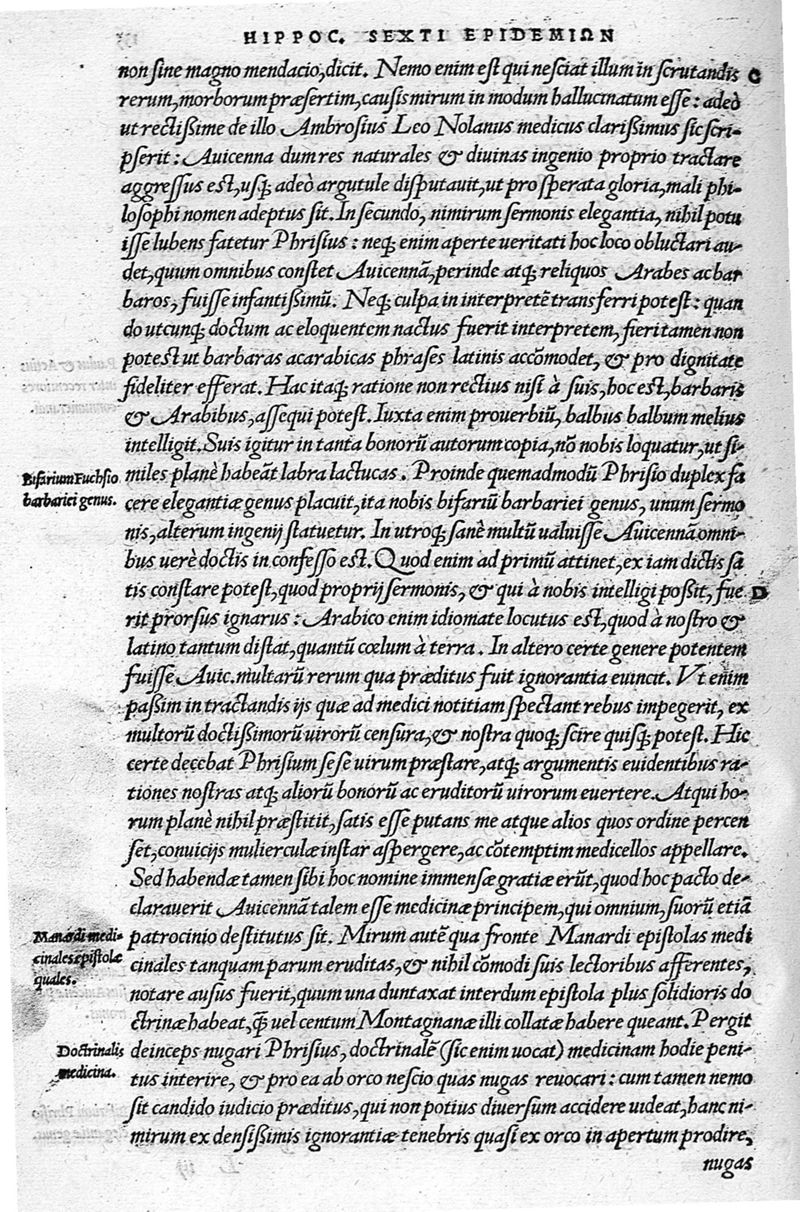 HIPPOC. SEXTI EPIDEMIΩN
non sine magno mendacio, dicit. Nemo enim est qui nesciat illum in scrutandis C
rerum, morborum præsertim, causis mirum in modum hallucinatum esse: adeò
ut rectißime de illo Ambrosius Leo Nolanus medicus clarißimus sic scri-
pserit: Auicenna dum res naturales & diuinas ingenio proprio tractare
aggressus est, usq; adeò argutule disputauit, ut pro sperata gloria, mali phi-
losophi nomen adeptus sit. In secundo, nimirum sermonis elegantia, nihil potu
isse lubens fatetur Phrisius: neq; enim aperte ueritati hoc loco obluctari au-
det, quum omnibus constet Auicennã, perinde atq; reliquos Arabes ac bar
baros, fuisse infantißimũ. Neq; culpa in interpretẽ transferri potest: quan
do utcunq; doctum ac eloquentem nactus fuerit interpretem, fieri tamen non
potest ut barbaras ac arabicas phrases latinis accõmodet, & pro dignitate
fideliter efferat. Hac itaq; ratione non rectius nisi à suis, hoc est, barbaris
& Arabibus, assequi potest. Iuxta enim prouerbiũ, balbus balbum melius
intelligit. Suis igitur in tanta bonorũ autorum copia, nõ nobis loquatur, ut si-
Bifarium Fuchsio
barbariei genus.
miles planè habeãt labra lactucas. Proinde quemadmodũ Phrisio duplex fa
cere elegantiæ genus placuit, ita nobis bifariũ barbariei genus, unum sermo
nis, alterum ingenij statuetur. In utroq; sanè multũ ualuisse Auicennã omni-
bus uerè doctis in confesso est. Quod enim ad primũ attinet, ex iam dictis sa
tis constare potest, quod proprij sermonis, & qui à nobis intelligi poßit, fue D
rit prorsus ignarus: Arabico enim idiomate locutus est, quod à nostro &
latino tantum distat, quantũ cœlum à terra. In altero certe genere potentem
fuisse Auic. multarũ rerum qua præditus fuit ignorantia euincit. Vt enim
paßim in tractandis ijs quæ ad medici notitiam spectant rebus impegerit, ex
multorũ doctißimorũ uirorũ censura, & nostra quoq; scire quisq; potest. Hic
certe decebat Phrisium sese uirum præstare, atq; argumentis euidentibus ra-
tiones nostras atq; aliorũ bonorũ ac eruditorũ uirorum euertere. Atqui ho-
rum planè nihil præstitit, satis esse putans me atque alios quos ordine percen
set, conuicijs mulierculæ instar aspergere, ac cõtemptim medicellos appellare.
Sed habendæ tamen sibi hoc nomine immensæ gratiæ erũt, quod hoc pacto de-
clarauerit Auicennã talem esse medicinæ principem, qui omnium, suorũ etiã
Manardi medi-
cinales epistolæ
quales.
patrocinio destitutus sit. Mirum autẽ qua fronte Manardi epistolas medi
cinales tanquam parum eruditas, & nihil cõmodi suis lectoribus afferentes,
notare ausus fuerit, quum una duntaxat interdum epistola plus solidioris do
ctrinæ habeat, q̃ uel centum Montagnanæ illi collatæ habere queant. Pergit
Doctrinalis
medicina.
deinceps nugari Phrisius, doctrinalẽ (sic enim uocat) medicinam hodie peni-
tus interire, & pro ea ab orco nescio quas nugas reuocari: cum tamen nemo
sit candido iudicio præditus, qui non potius diuersum accidere uideat, hanc ni-
mirum ex densißimis ignorantiæ tenebris quasi ex orco in apertum prodire,
nugas